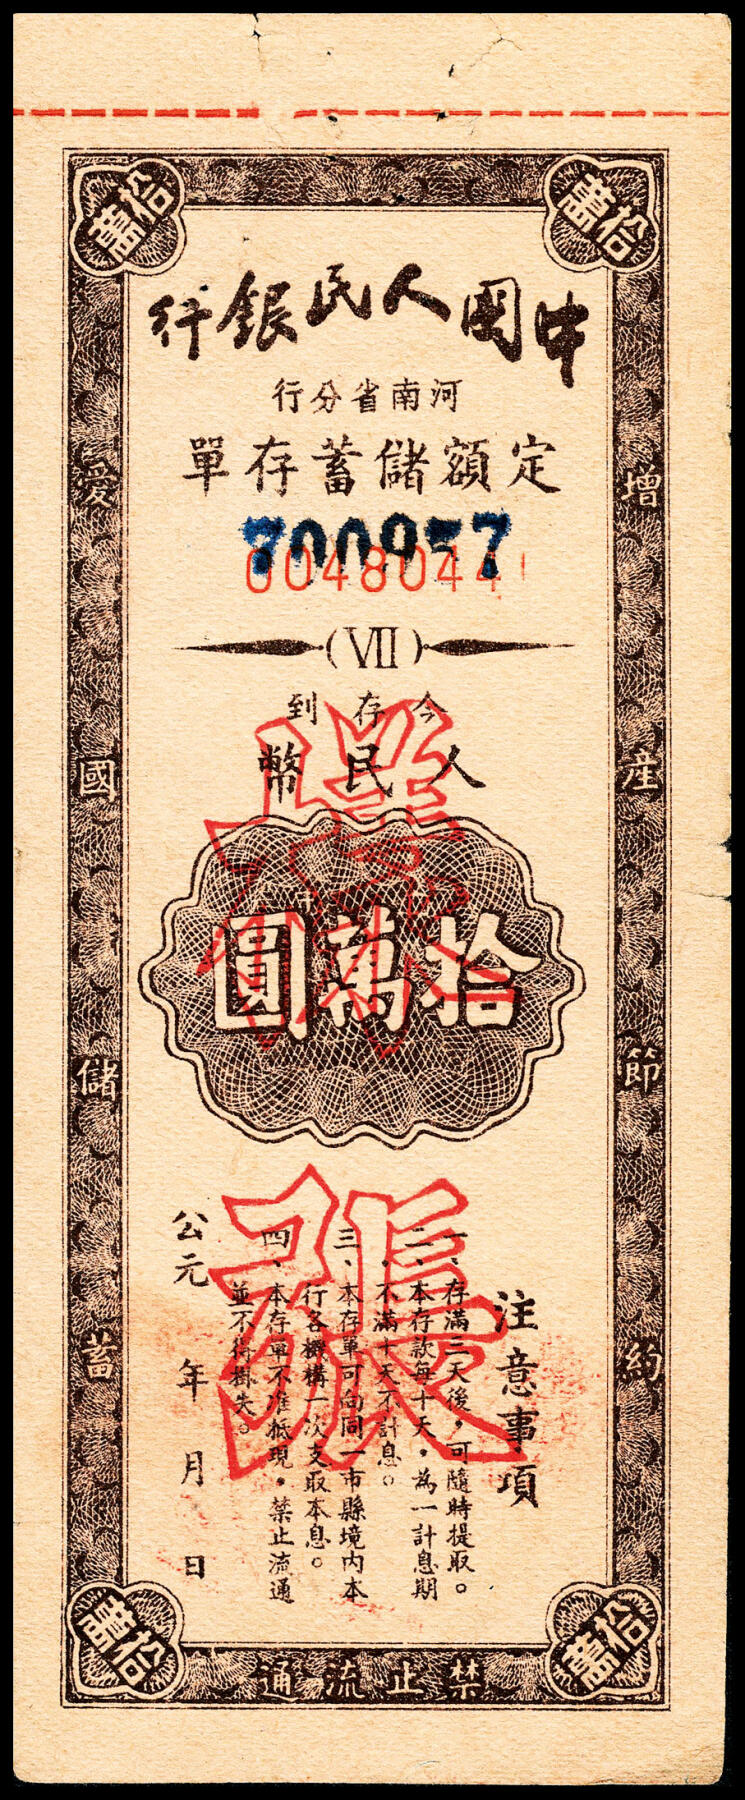 拾萬
拾萬
中國人民銀行
河南省分行
定額儲蓄存單
700957
00480441
(VII)
今存到
人民幣
拾萬圓
樣
張
注意事項
一、存滿三天後，可隨時提取。
二、本存款每十天，為一計息期
，不滿十天不計息。
三、本存單可向同一市縣境內本
行各機構一次支取本息。
四、本存單不准抵現，禁止流通
並不得掛失。
公元 年 月 日
增產節約
愛國儲蓄
拾萬
拾萬
禁止流通